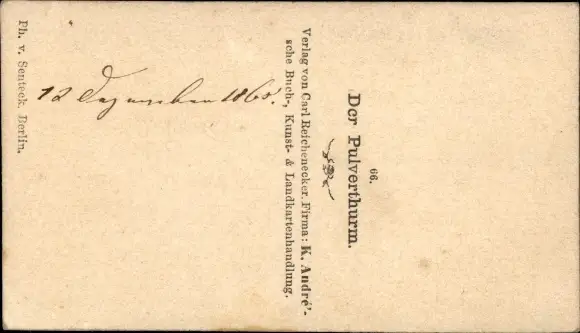 66.
Der Pulverthurm.
Verlag von Carl Reichenecker, Firma: K. André'-
sche Buch-, Kunst- & Landkartenhandlung.
12 Dezember 1865.
Ph. v. Senteck, Berlin.